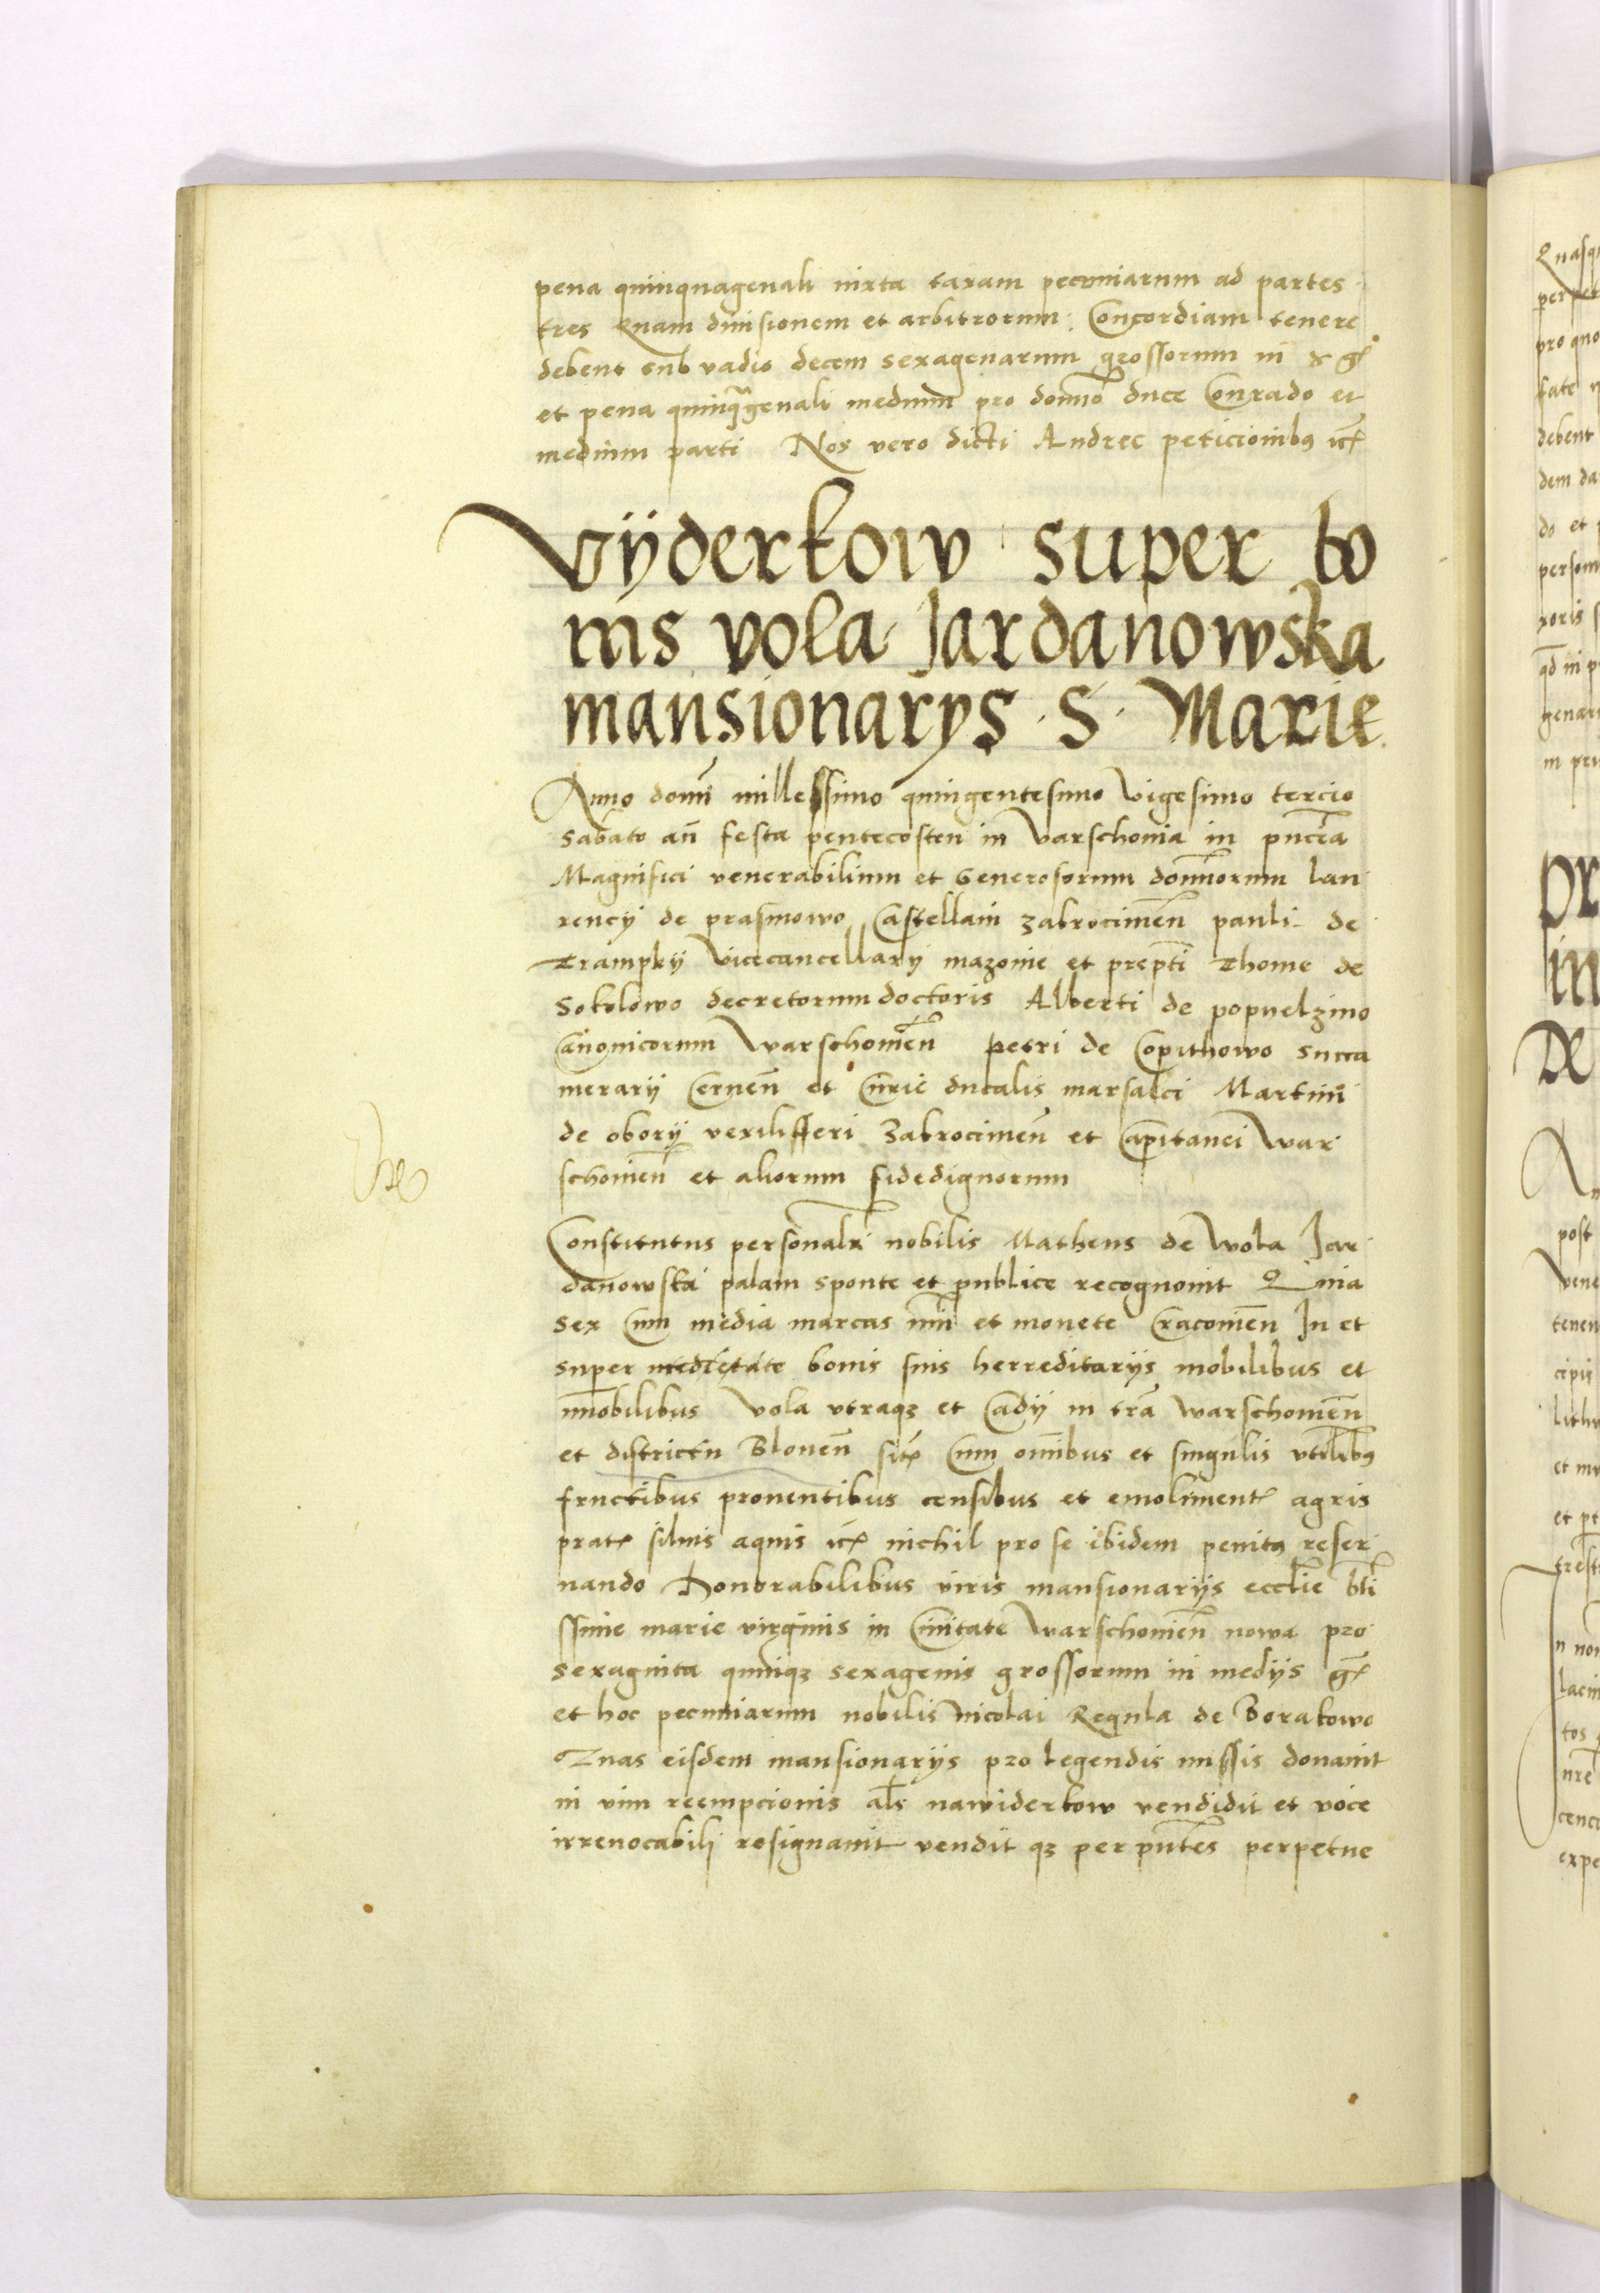 pena quinquagenali iuxta taxam pecuniarum ad partes
tres Quam diuisionem et arbitrorum Concordiam tenere
debent sub vadio decem sexagenarum grossorum in
et pena quinquagenali medium pro domno duce Conrado et
medium parti Nos vero dicti Andree peticionibus etc
Vÿderkow super bo
nis vola Jardanowska
mansionarÿs · S · Marie
Anno domi millessimo quingentesimo vigesimo tercio
sabato an festa pentecosten in Varschouia in pncia
Magnifici venerabilium et Generosorum domnorum lau
rencÿ de prasmowo Castellani zakrocimen pauli de
Trampkÿ Vicecancellarÿ mazouie et prepti Thome de
Sokolowo decretorum doctoris Alberti de popuelzino
Canonicorum Warschouien petri de Copithowo succa
merarÿ Cernen et Curie ducalis marsalci Martini
de oborÿ vexilifferi Zakrocimen et Capitanei War
schouien et aliorum fidedignorum
Constitutus personalr nobilis Matheus de Wola Jar
danowska palam sponte et publice recognouit Quia
sex Cum media marcas nui et monete Cracouien In et
super medietate bonis suis herreditarÿs mobilibus et
immobilibus Vola vtraqz et Cadÿ in tra Warschouien
et districtu Blonen sit Cum omibus et singulis vtilibus
fructibus prouentibus censibus et emoliment agris
prat siluis aquis etc nichil pro se ibidem penitus reser
uando Honorabilibus viris mansionarÿs ecclie bti
ssime marie virginis in Ciuitate Warschouien nowa pro
sexaginta quinqz sexagenis grossorum in medÿs gr
et hoc pecuniarum nobilis Nicolai Regula de Borakowo
Quas eisdem mansionarÿs pro legendis missis donauit
in vim reempcionis als nawiderkow vendidit et voce
irreuocabili resignauit vendit qz per pntes perpetue